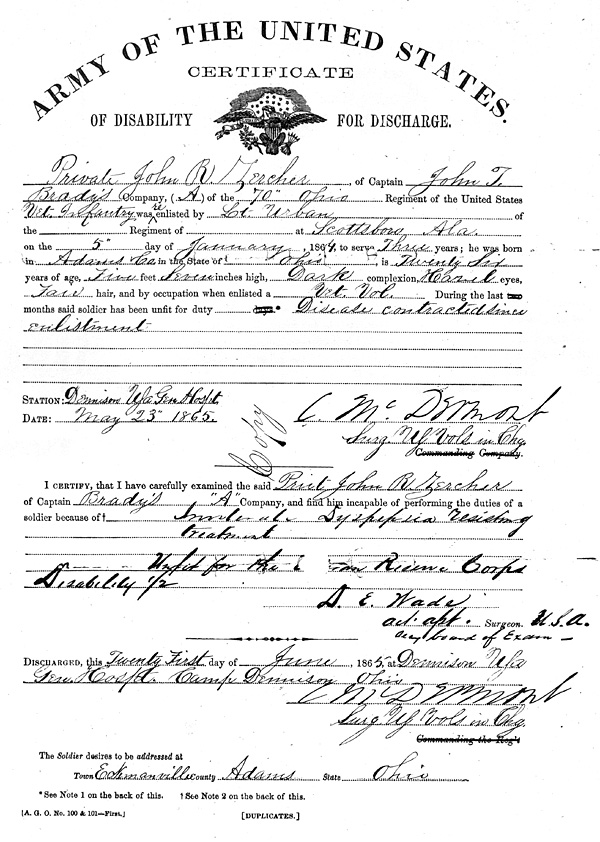 ARMY OF THE UNITED STATES.
CERTIFICATE
OF DISABILITY FOR DISCHARGE.
Private John R. Zercher, of Captain John T.
Brady's Company, (A) of the "70" Ohio Regiment of the United States
Vet. Infantry was re enlisted by Lt. Urban of
the Regiment of at Scottsboro Ala.
on the 5" day of January, 1864, to serve Three years; he was born
in Adams Co. in the State of Ohio is Twenty Six
years of age, Five feet Seven inches high, Dark complexion, Hazel eyes,
Fair hair, and by occupation when enlisted a Vet. Vol. During the last two
months said soldier has been unfit for duty days.* Disease contracted since
enlistment
STATION: Dennison Gen Hospt.
DATE: May 23" 1865.
C. McDermont
Surg Vols in Chg
Commanding Company.
Copy
I CERTIFY, that I have carefully examined the said Privt. John R. Zercher
of Captain Brady's "A" Company, and find him incapable of performing the duties of a
soldier because of† Dyspepsia resisting
treatment
Unfit for the Corps
Disability 1/2
D. E. Wade
act. apt. Surgeon. U.S.A.
board of Exam
DISCHARGED, this Twenty First day of June, 1865, at Dennison
Gen. Hospt. Camp Dennison Ohio
C McDermont
Surg Vols in Chg.
Commanding the Reg't
The Soldier desires to be addressed at
Town Eckmanville County Adams State Ohio
*See Note 1 on the back of this. †See Note 2 on the back of this.
[A. G. O. No. 100 & 101—First.] [DUPLICATES.]